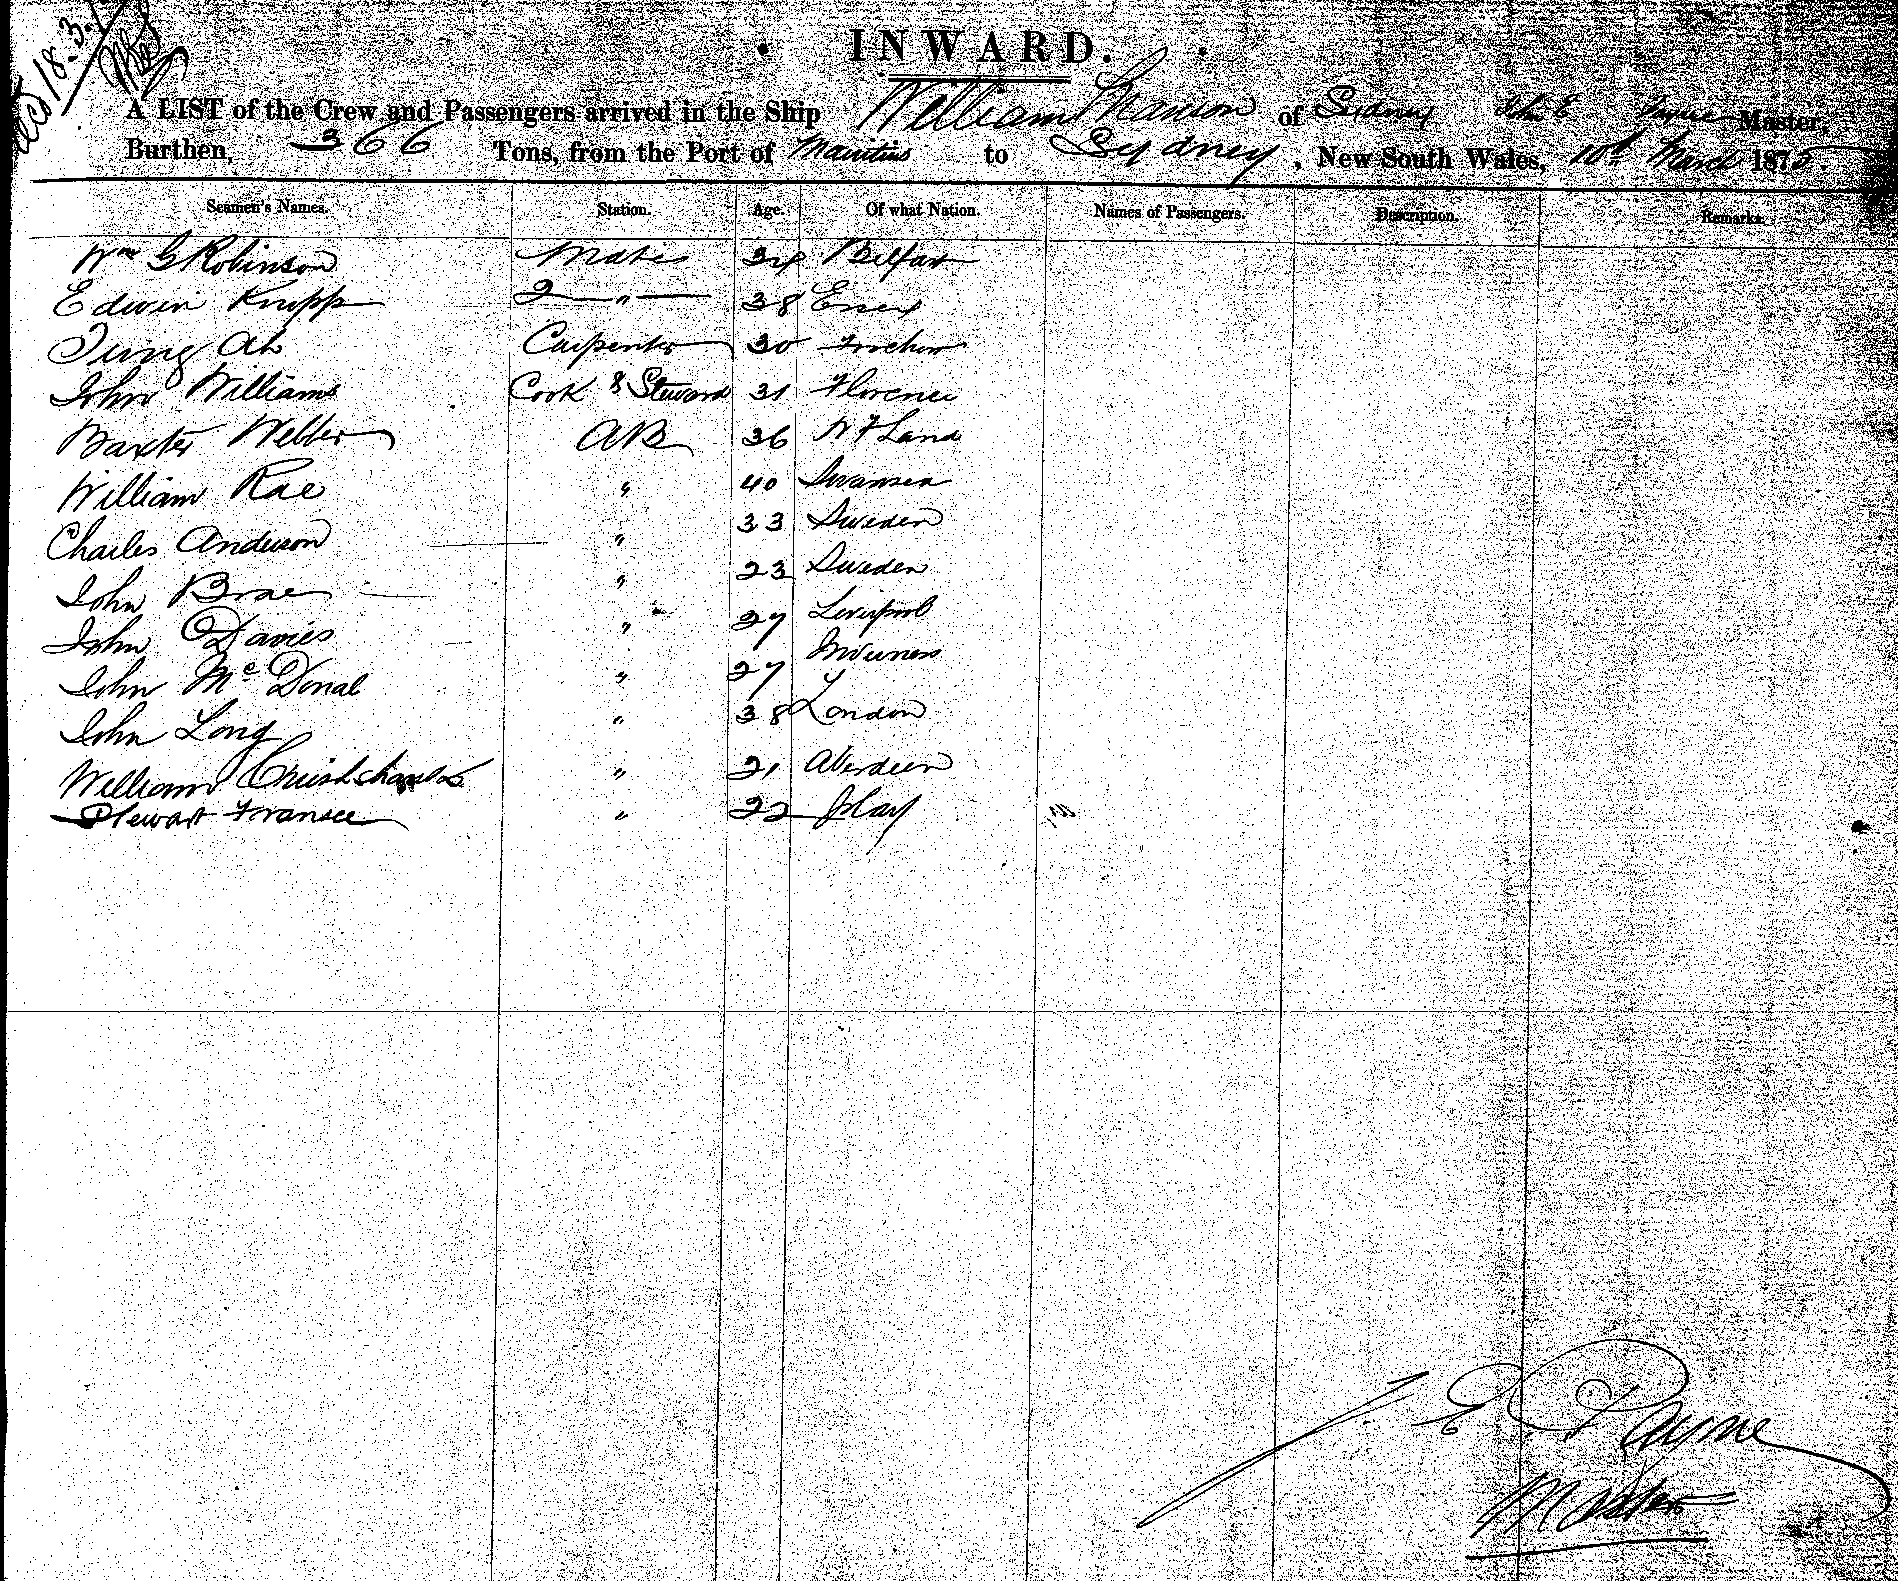 18.3.
INWARD.
A LIST of the Crew and Passengers arrived in the Ship William Manson of Sydney John E Payne Master,
Burthen, 366 Tons, from the Port of Mauritius to Sydney, New South Wales, 10th March 1875
Seamen's Names. Station. Age. Of what Nation. Names of Passengers. Description. Remarks.
Wm G Robinson Mate 34 Belfast
Edwin Knupp 2 — " — 38 Essex
Tung Ah Carpenter 30 Foochow
John Williams Cook & Steward 31 Florence
Baxter Webber AB 36 N F Land
William Rae " 40 Swansea
Charles Anderson " 33 Sweden
John Brae " 23 Sweden
John Davies " 27 Liverpool
John Mc Donal " 27 Inverness
John Long " 38 London
William " 21 Aberdeen
Stewart Fransee " 22 Islay
J E Payne
Master